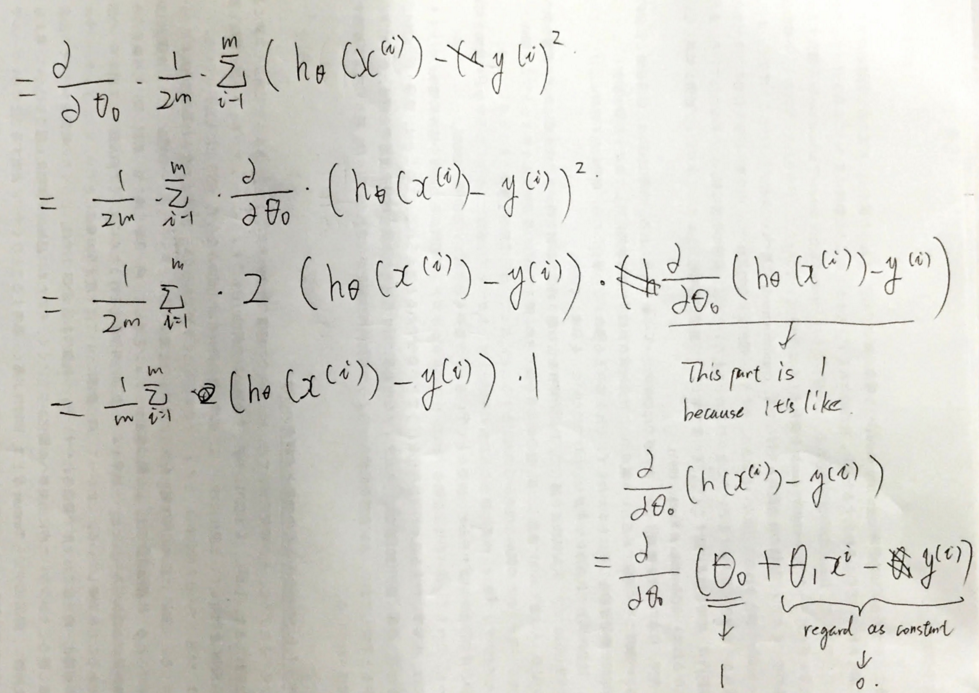 = ∂/∂θ₀ · 1/2m · Σ_{i-1}^{m} (hθ(x^(i)) - y^(i))².
= 1/2m · Σ_{i-1}^{m} · ∂/∂θ₀ · (hθ(x^(i)) - y^(i))².
= 1/2m Σ_{i=1}^{m} · 2 (hθ(x^(i)) - y^(i)) · ∂/∂θ₀ (hθ(x^(i)) - y^(i))
= 1/m Σ_{i=1}^{m} (hθ(x^(i)) - y^(i)) · 1
This part is 1
because it's like.
∂/∂θ₀ (h(x^(i)) - y^(i))
= ∂/∂θ₀ (θ₀ + θ₁x^i - y^(i))
↓ regard as constant
↓
1 0.